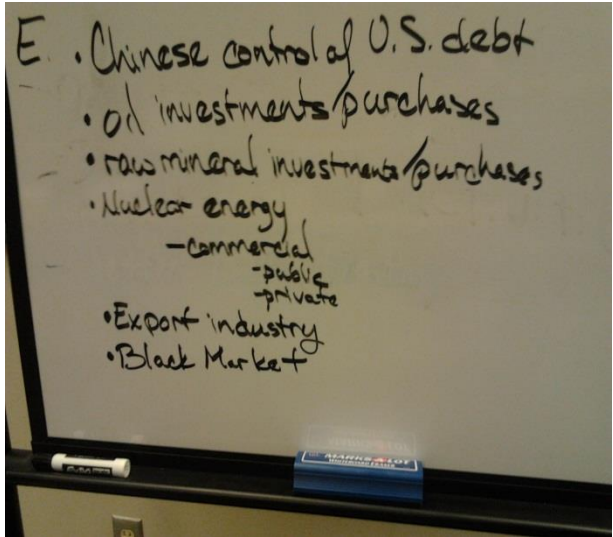 E. • Chinese control of U.S. debt
• oil investments/purchases
• raw mineral investments/purchases
• Nuclear energy
- commercial
- public
- private
• Export industry
• Black Market
MARKS A LOT
WHITEBOARD ERASER